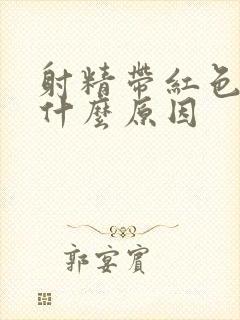 射精帶紅色
什麼原因
郭宴賓